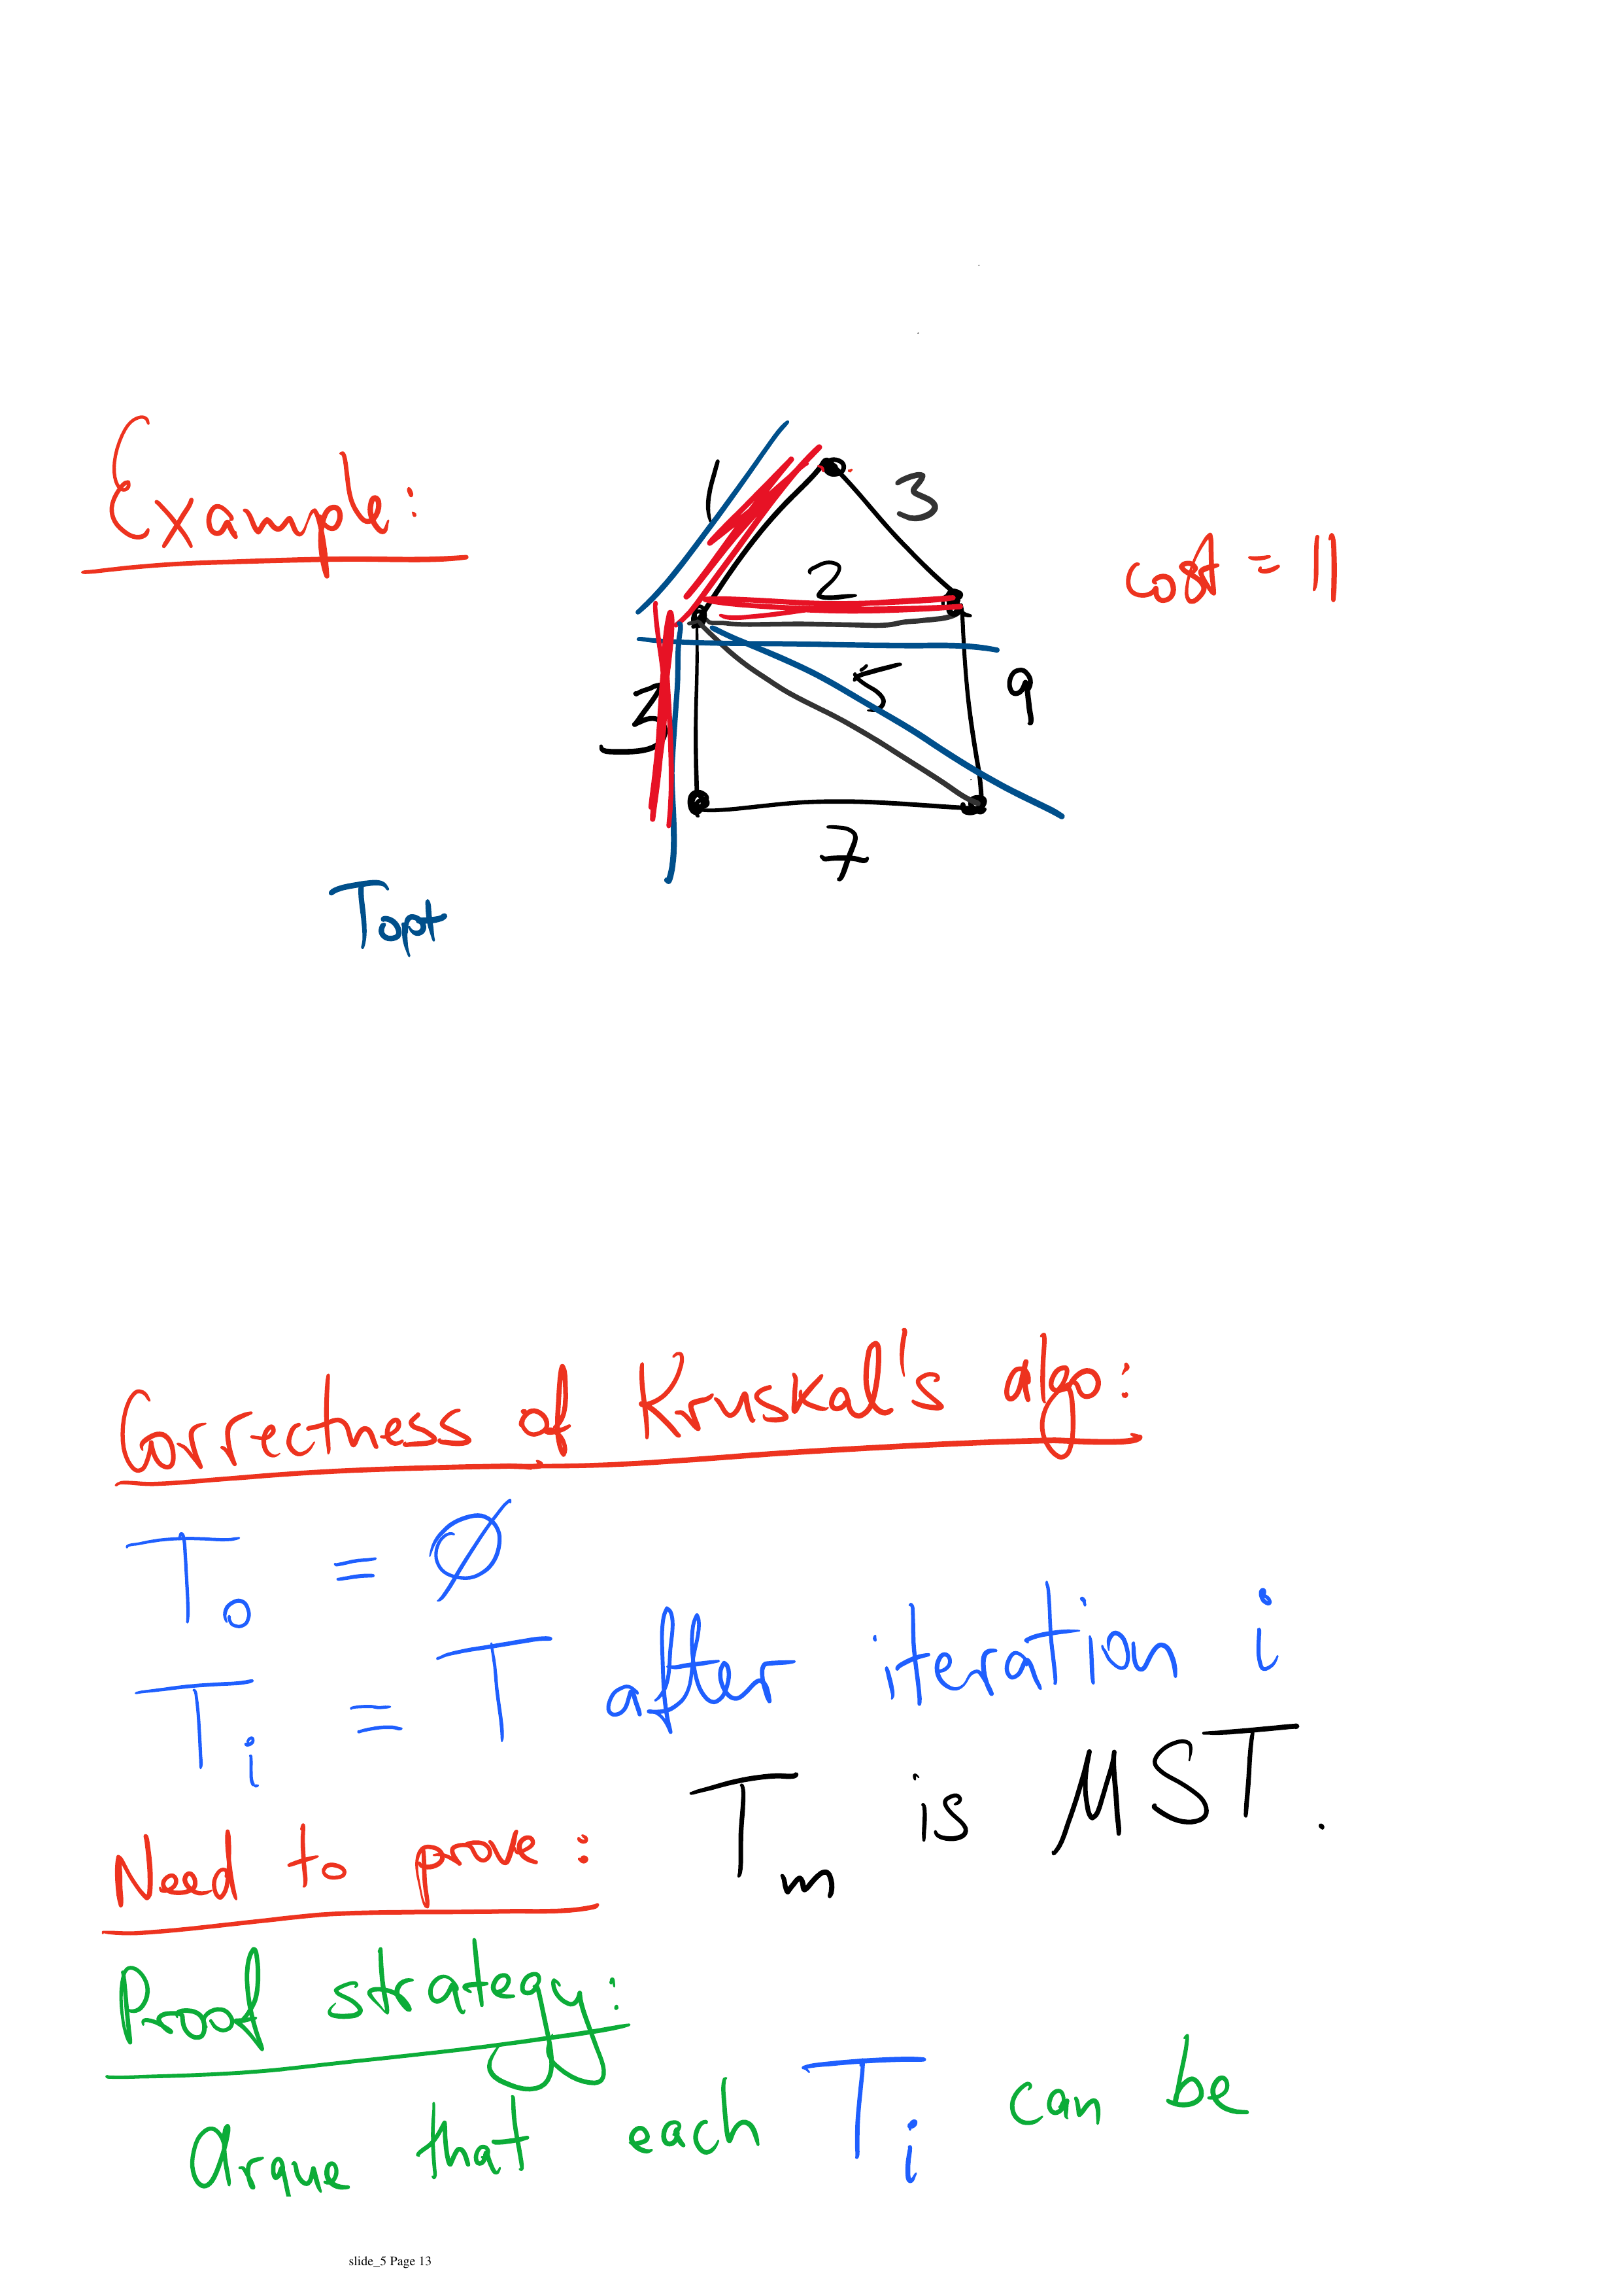 Example:
1
3
2
cost = 11
5
9
3
7
Topt
Correctness of Kruskal's algo:
T₀ = ∅
Tᵢ = T after iteration i
Need to prove: Tₘ is MST.
Proof strategy:
Argue that each Tᵢ can be
slide_5 Page 13